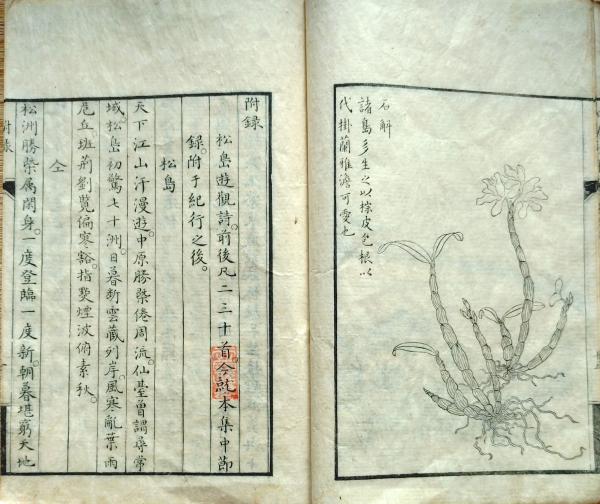 石斛
諸島多生之以棕皮包根以
代掛蘭雅澹可愛也
附録
松島遊觀詩。前後凡二三十首。今就本集中節
録。附于紀行之後。
松島
天下江山汗漫遊。中原勝槩倦周流。仙臺曾謂尋常
域。松島初驚七十洲。日暮斷雲藏列岸。風寒亂葉雨
危丘。班荊劉覽偏寒豁。指點煙波俯素秋。
仝
松洲勝槩属閑身。一度登臨一度新。朝暮堪窮天地
附録